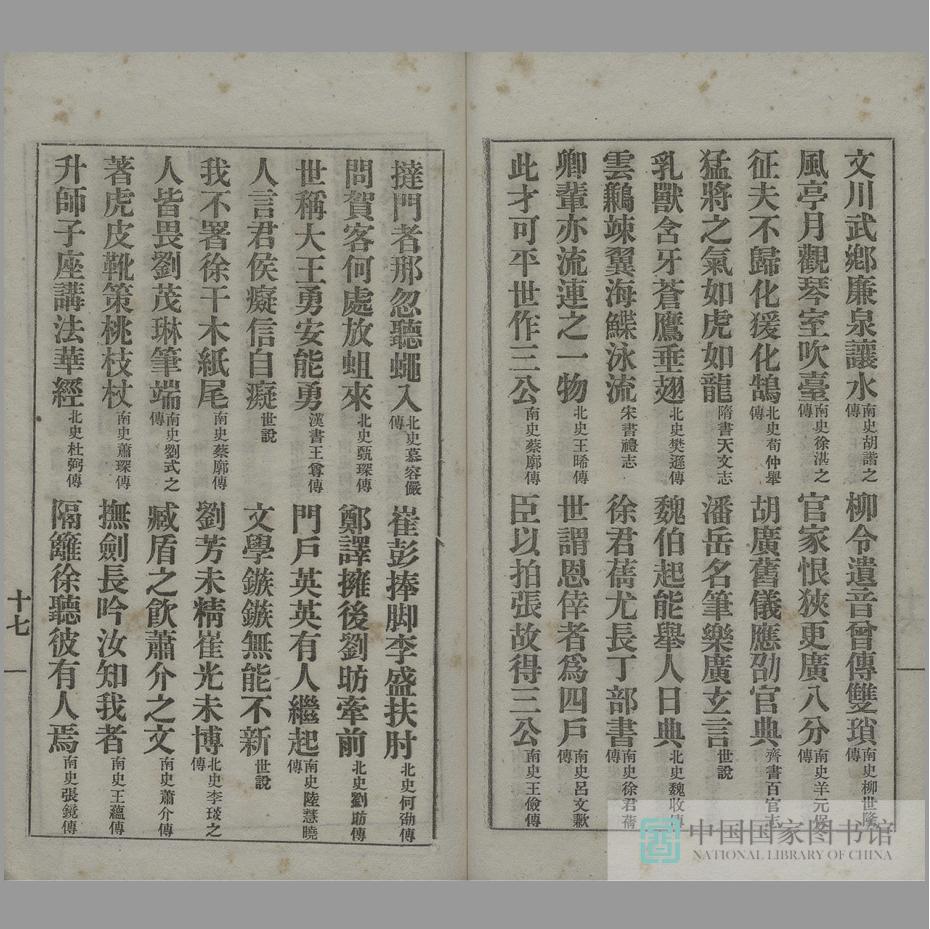 文川武鄉廉泉讓水南史胡諧之傳　柳令遺音曾傳雙瑣南史柳世隆傳
風亭月觀琴室吹臺南史徐湛之傳　官家恨狹更廣八分南史羊元保傳
征夫不歸化猨化鵠北史荀仲舉傳　胡廣舊儀應劭官典齊書百官志
猛將之氣如虎如龍隋書天文志　潘岳名筆樂廣玄言世說
乳獸含牙蒼鷹垂翅北史樊遜傳　魏伯起能舉人日典北史魏收傳
雲鶼竦翼海鰈泳流宋書禮志　徐君蒨尤長丁部書南史徐君蒨傳
卿輩亦流連之一物北史王晞傳　世謂恩倖者為四戶南史呂文歉傳
此才可平世作三公南史蔡廓傳　臣以拍張故得三公南史王儉傳
撻門者那忽聽蠅入北史慕容儼傳　崔彭捧脚李盛扶肘北史何洯傳
問賀客何處放蛆來北史甄琛傳　鄭譯擁後劉昉牽前北史劉昉傳
世稱大王勇安能勇漢書王尊傳　門戶英英有人繼起南史陸慧曉傳
人言君侯癡信自癡世說　文學鏃鏃無能不新世說
我不署徐干木紙尾南史蔡廓傳　劉芳未精崔光未博北史李琰之傳
人皆畏劉茂琳筆端南史劉式之傳　臧盾之飲蕭介之文南史蕭介傳
著虎皮靴策桃枝杖南史蕭琛傳　撫劍長吟汝知我者南史王蘊傳
升師子座講法華經北史杜弼傳　隔籬徐聽彼有人焉南史張鏡傳
十七
中国国家图书馆
NATIONAL LIBRARY OF CHINA